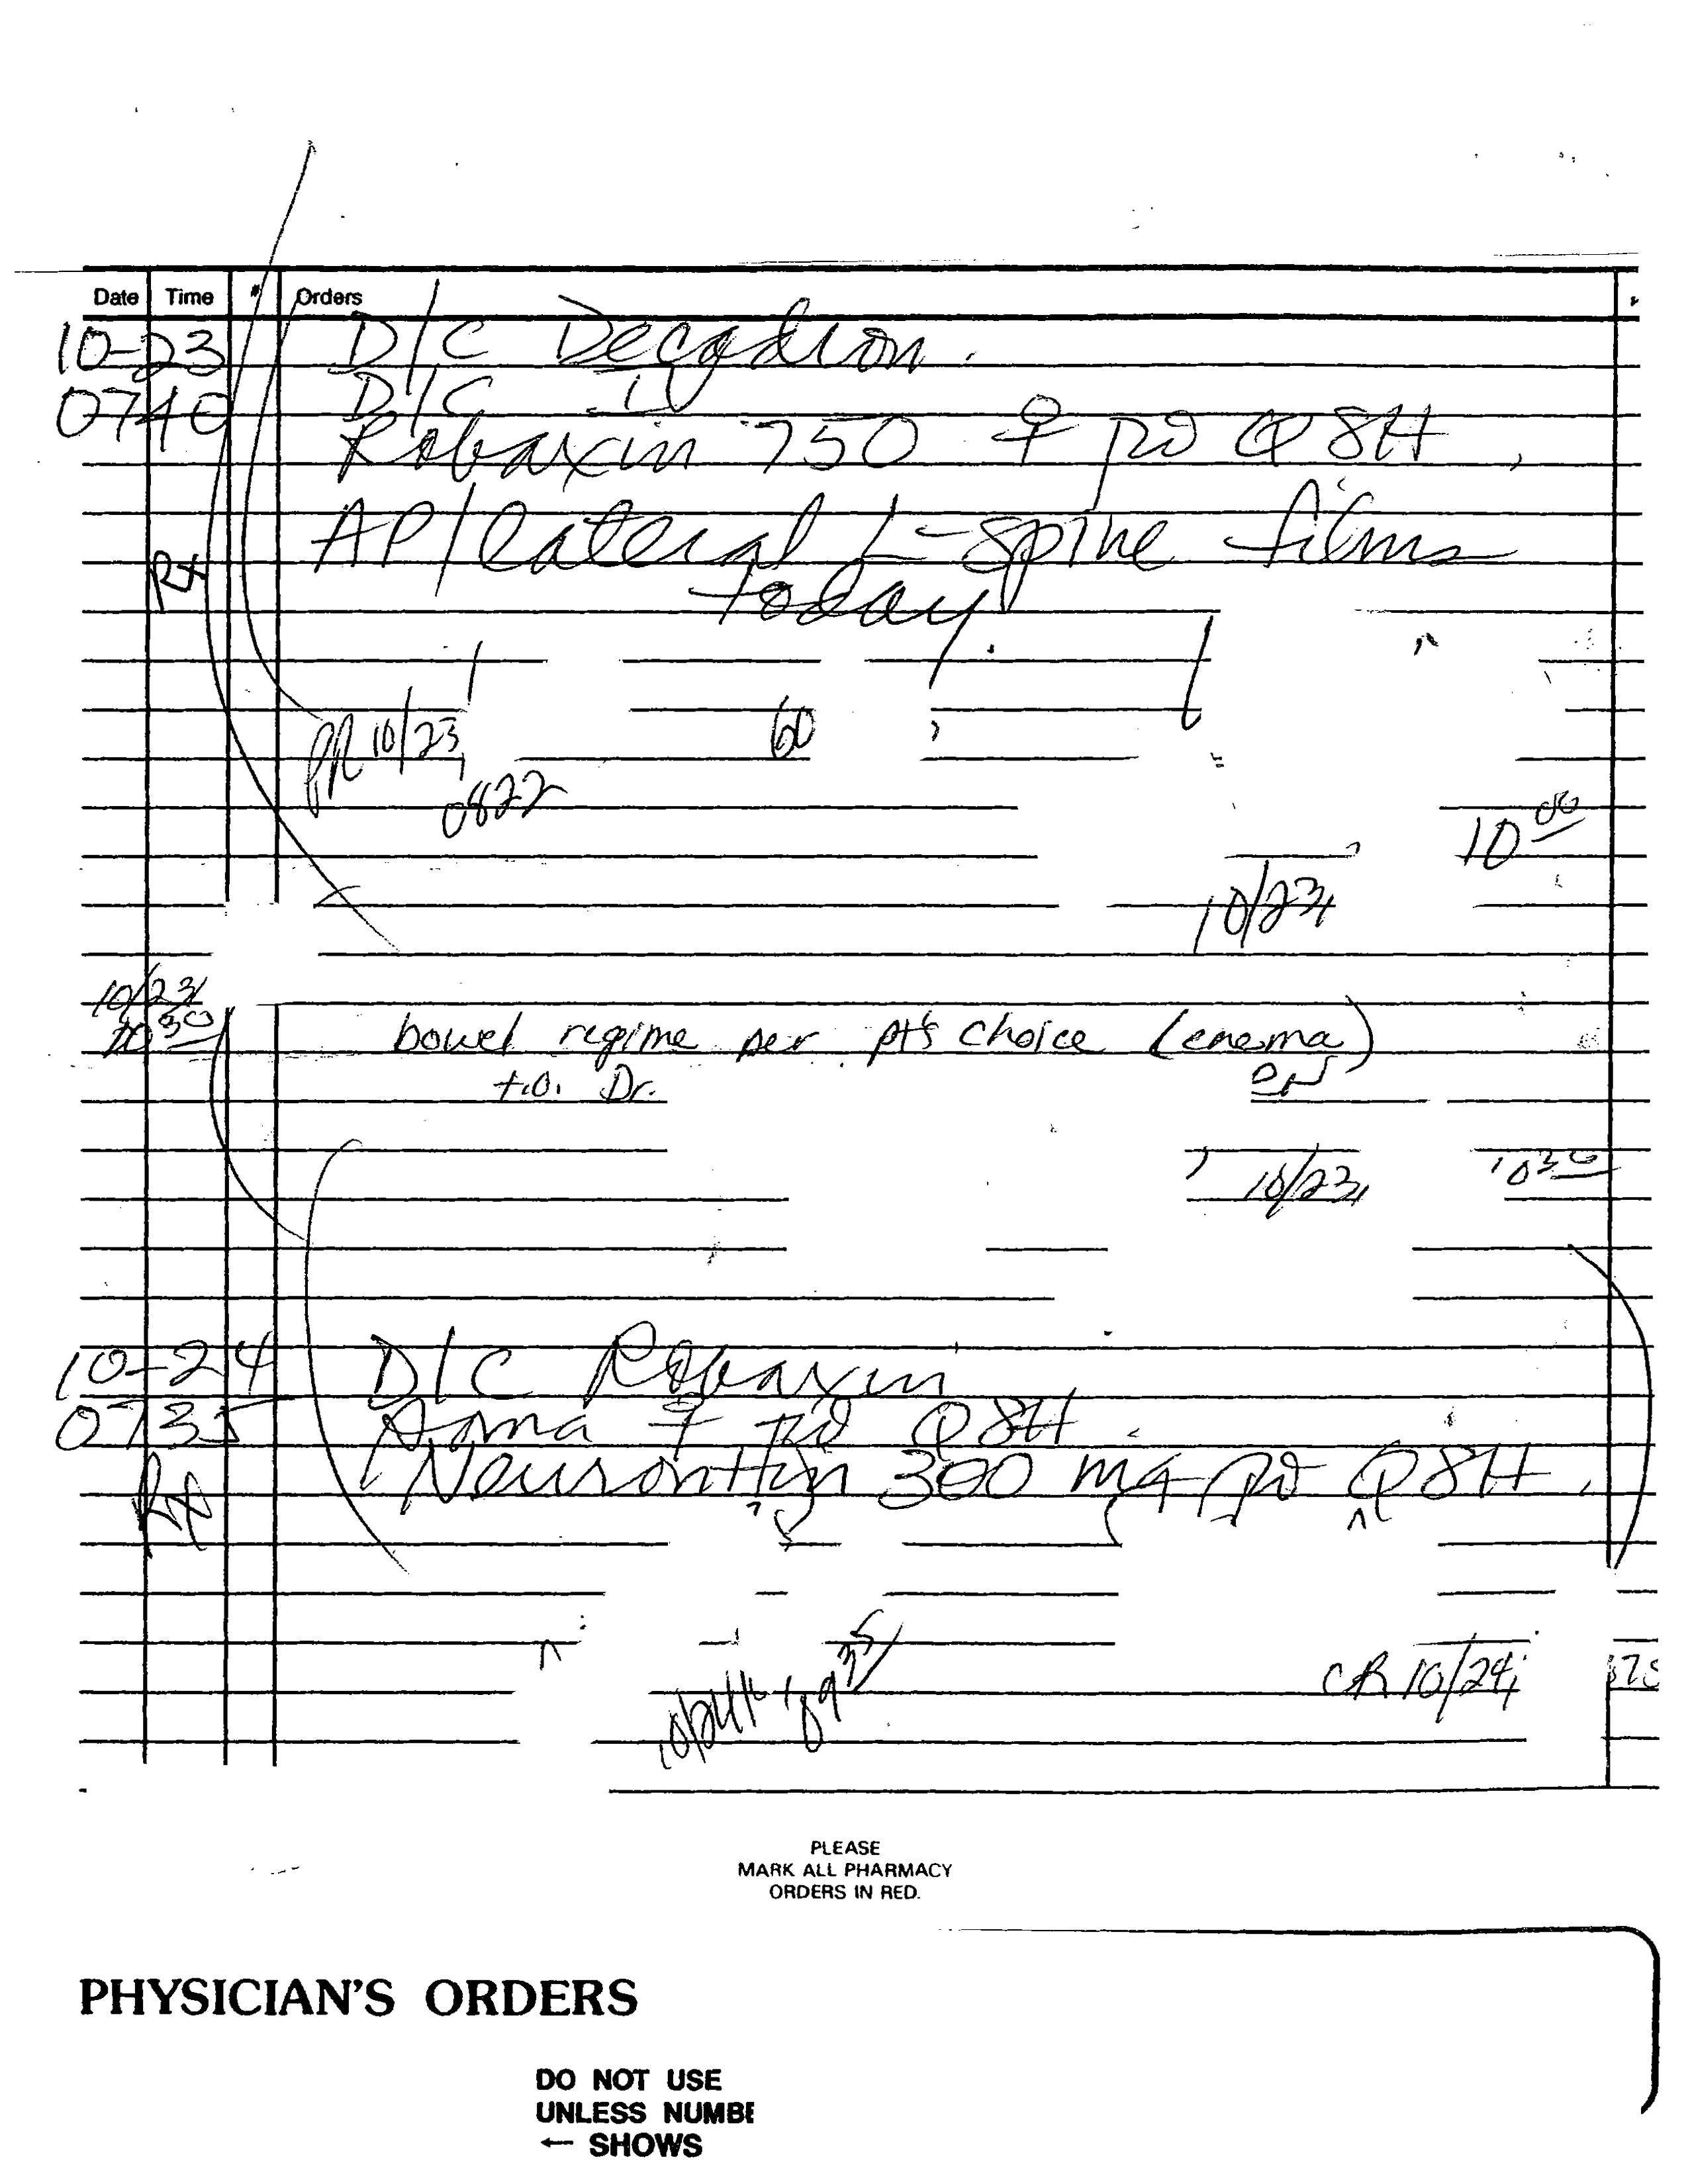 Date Time # Orders
10-23 D/C Decadron.
0740 D/C IV
Robaxin 750 † po Q 8H,
AP/lateral L-spine films
Rx today.
PR 10/23, 60
0822
10 00
10/23,
10/23/
1030 bowel regime per pt's choice (enema)
t.o. Dr.
10/23, 1030
10-24 D/C Robaxin
0735 Soma † po Q8H.
Rx Neurontin 300 mg po Q8H.
10/24 0935
CR 10/24;
PLEASE
MARK ALL PHARMACY
ORDERS IN RED.
PHYSICIAN'S ORDERS
DO NOT USE
UNLESS NUMBE
← SHOWS